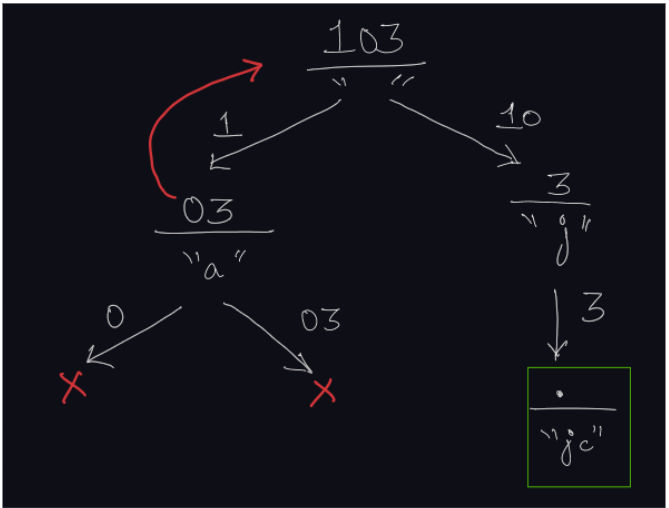 103
" "
1 10
03 3
"a" "j"
0 03 3
X X .
"jc"